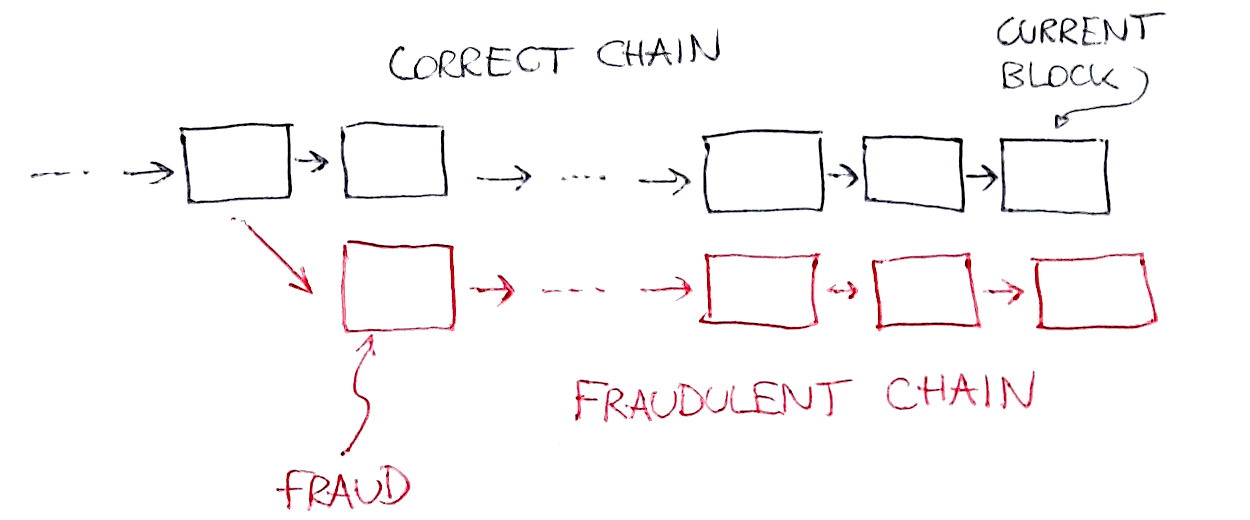 CORRECT CHAIN
CURRENT
BLOCK
FRAUDULENT CHAIN
FRAUD